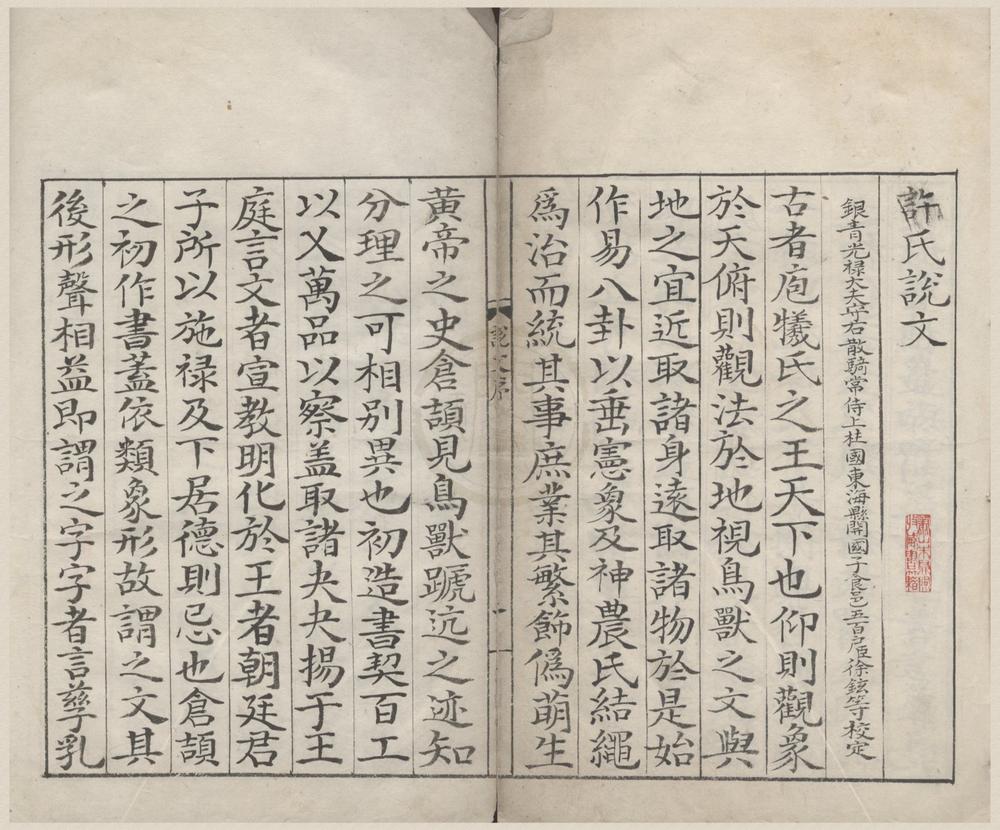 許氏說文
銀青光祿大夫守右散騎常侍上柱國東海縣開國子食邑五百户臣徐鉉等校定
古者庖犧氏之王天下也仰則觀象
於天俯則觀法於地視鳥獸之文與
地之宜近取諸身遠取諸物於是始
作易八卦以垂憲象及神農氏結繩
爲治而統其事庶業其繁飾僞萌生
說文序
黃帝之史倉頡見鳥獸蹏迒之迹知
分理之可相別異也初造書契百工
以乂萬品以察蓋取諸夬夬揚于王
庭言文者宣教明化於王者朝廷君
子所以施禄及下居德則忌也倉頡
之初作書蓋依類象形故謂之文其
後形聲相益即謂之字字者言孳乳